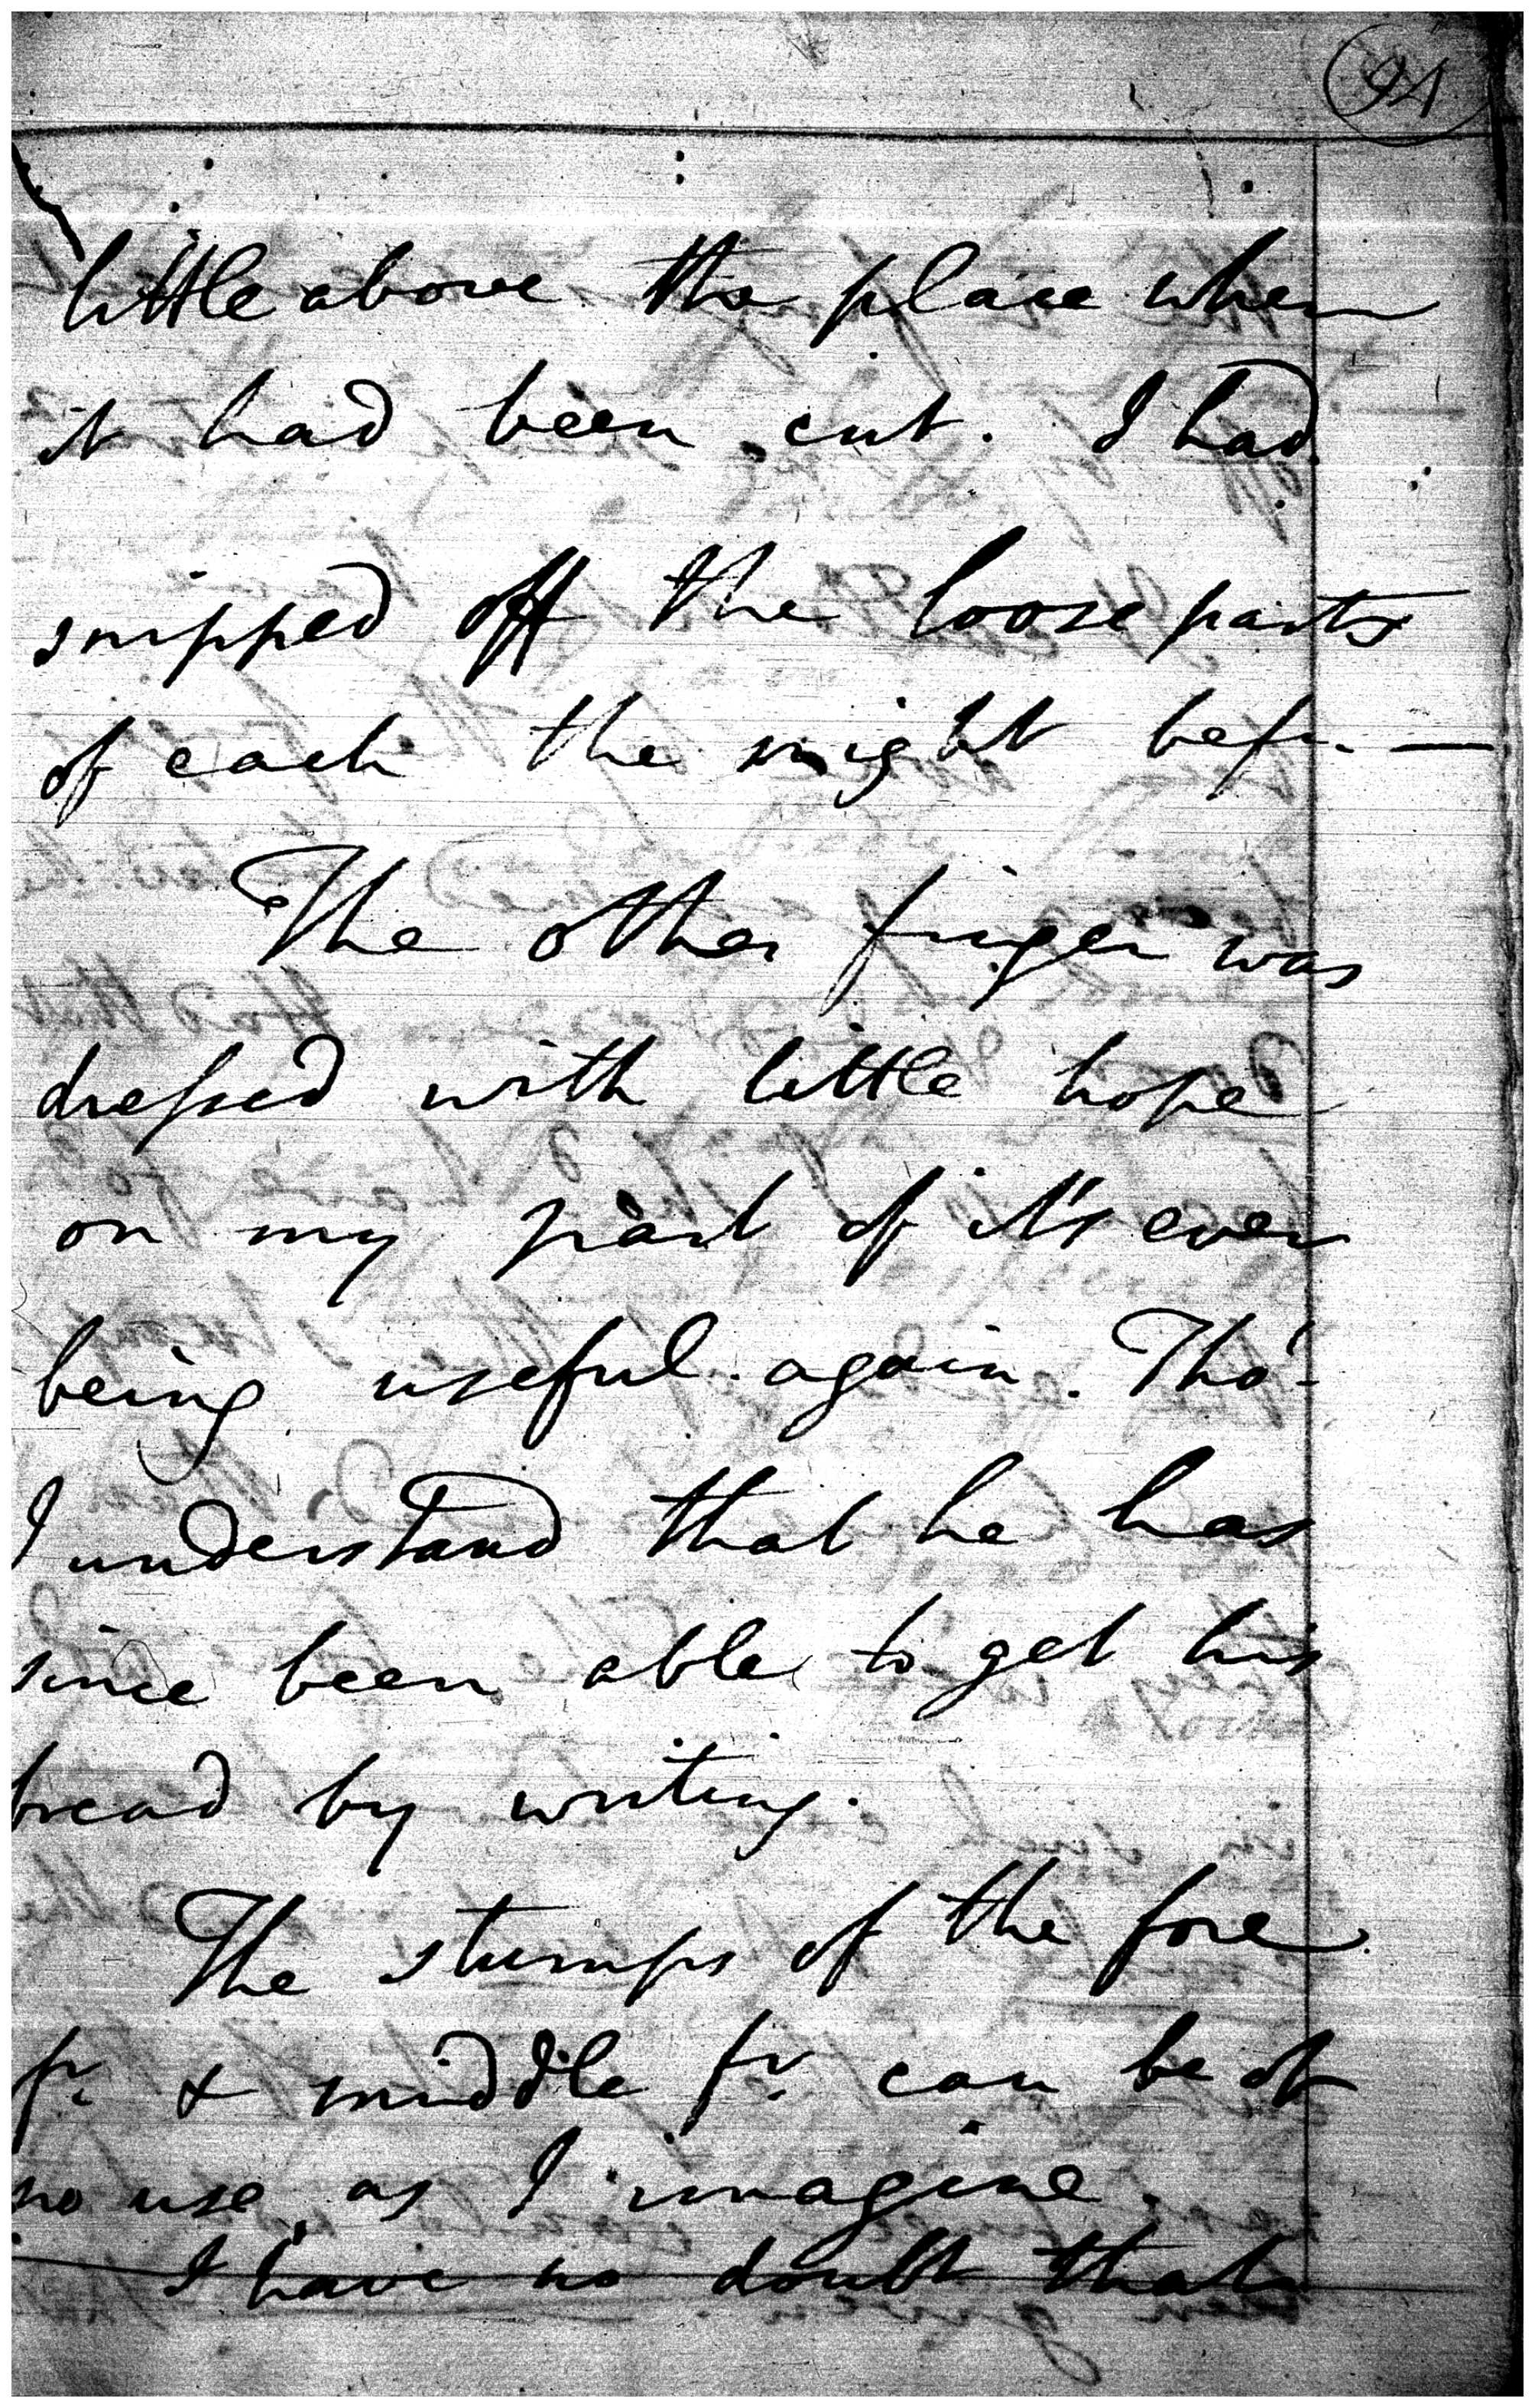 94
little above the place when
it had been cut. I had
snipped off the loose parts
of each the night bef. —
The other finger was
dressed with little hope
on my part of it's ever
being useful again. Tho'
I understand that he has
since been able to get his
bread by writing.
The stumps of the fore
fr. & middle fr. can be of
no use as I imagine.
I have no doubt that